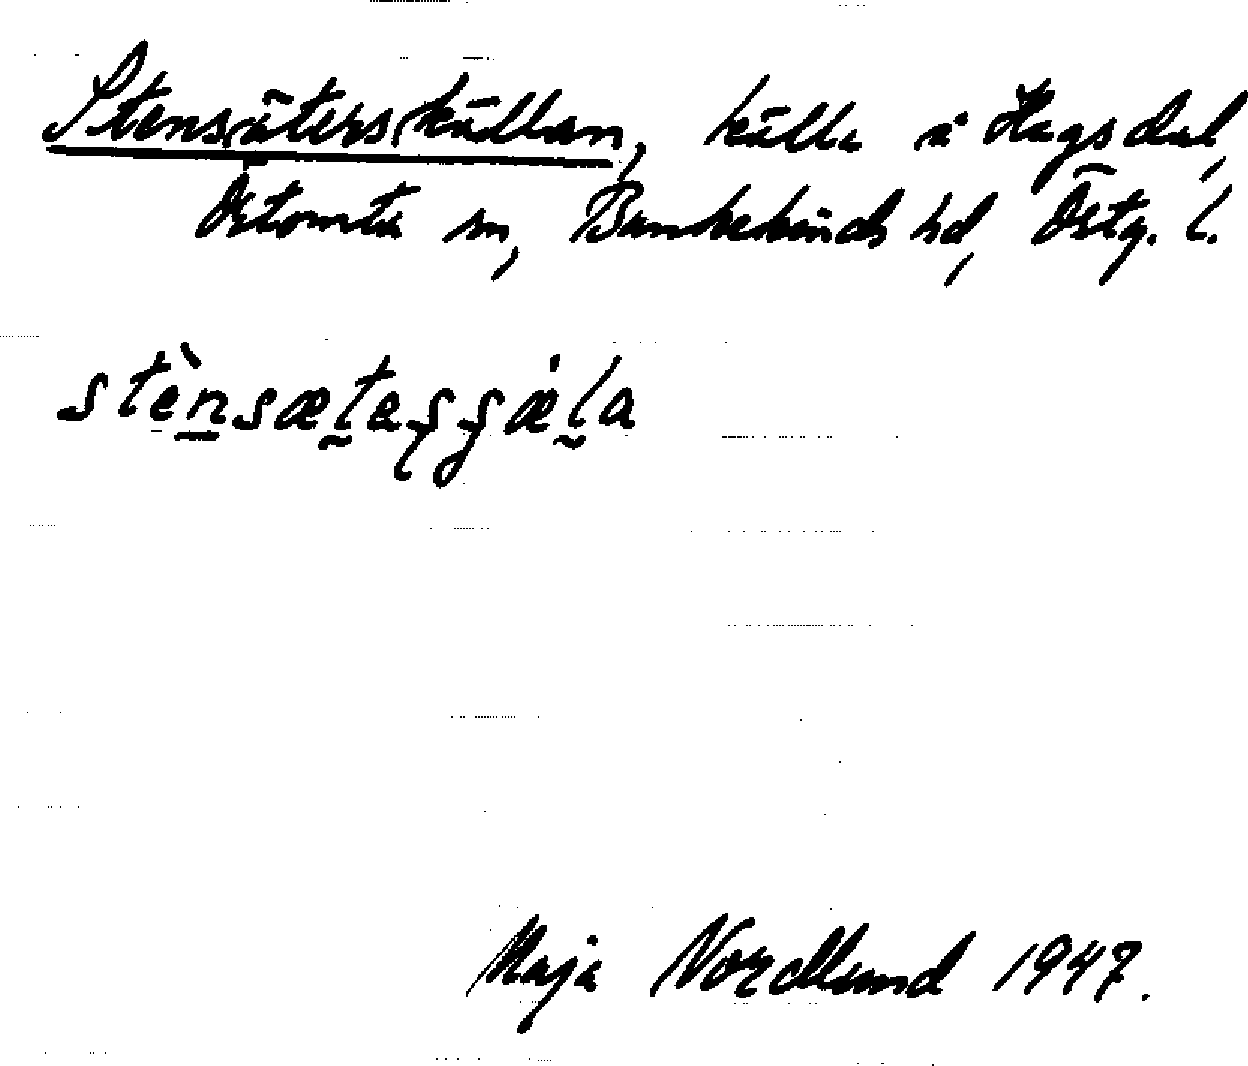 Stens|äters|källan, källa å Hagsdal,
Örtomta sn, Bankekinds hd, Östg. l.
stènsætaʂʂǽla
Maja Nordlund 1947.